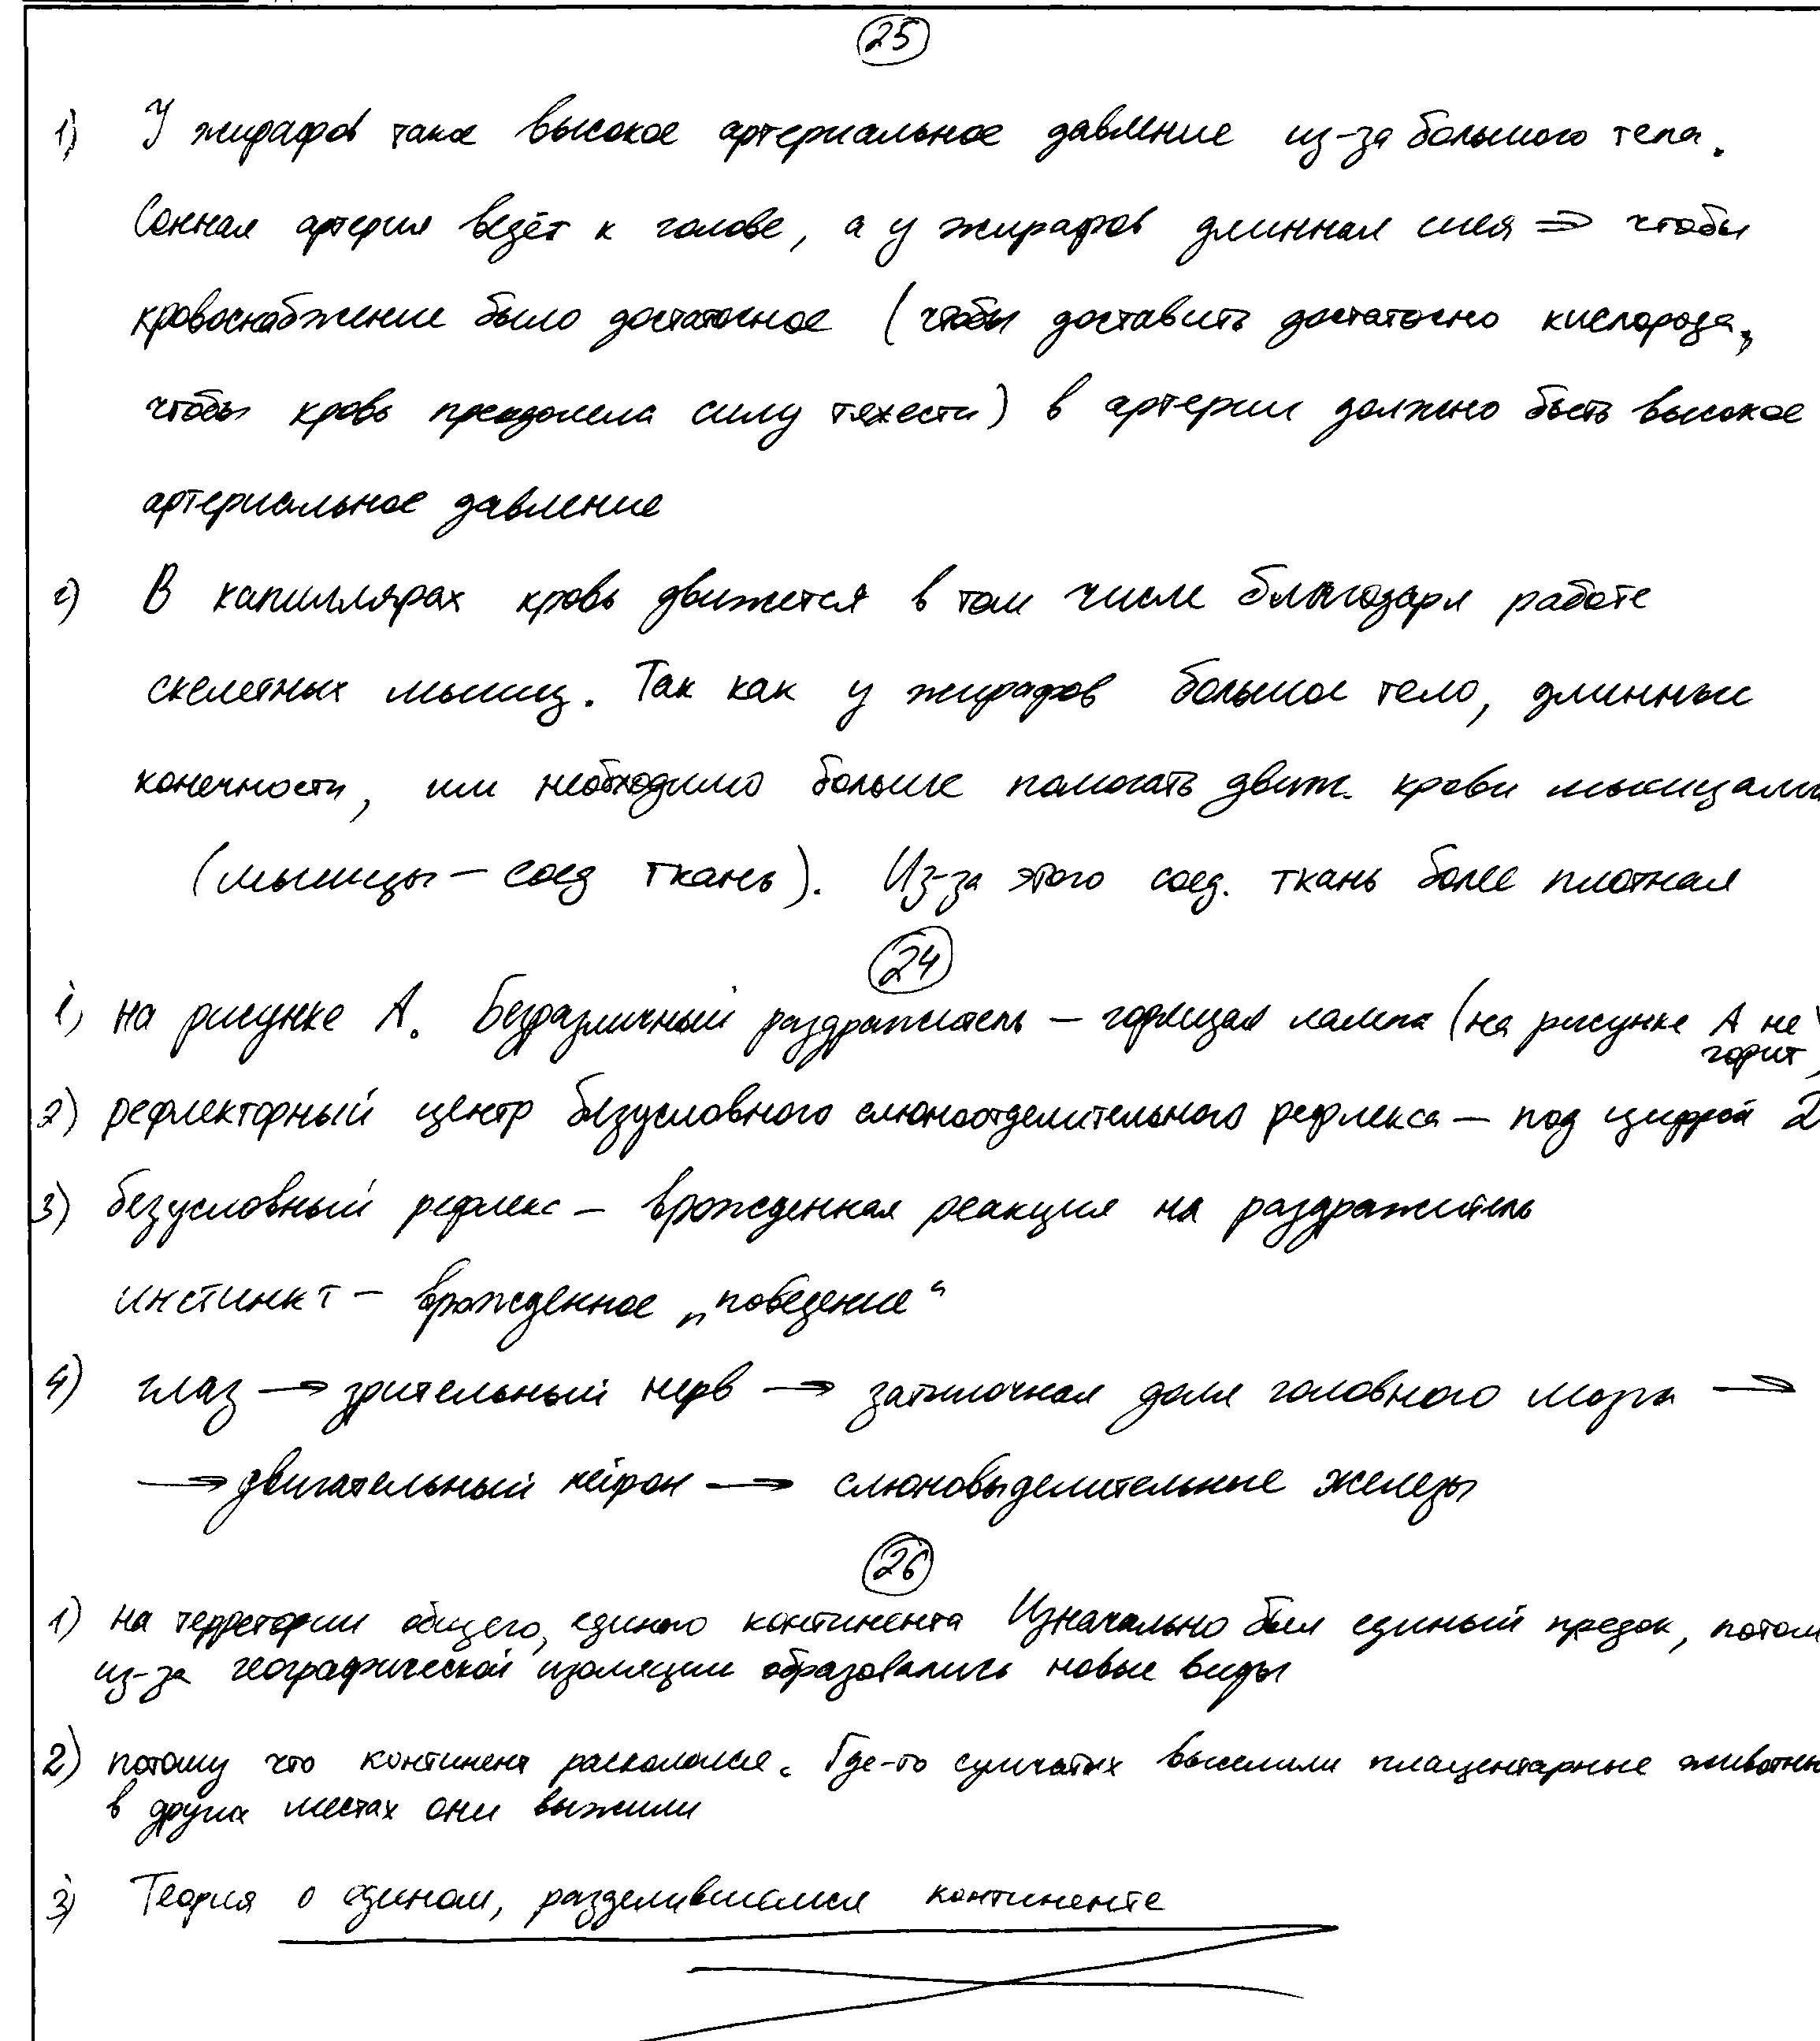 25
1) У жирафов такое высокое артериальное давление из-за большого тела.
Сонная артерия ведёт к голове, а у жирафов длинная шея => чтобы
кровоснабжение было достаточное (чтобы доставить достаточно кислорода,
чтобы кровь преодолела силу тяжести) в артерии должно быть высокое
артериальное давление
2) В капиллярах кровь движется в том числе благодаря работе
скелетных мышц. Так как у жирафов большое тело, длинные
конечности, им необходимо больше помогать движ. крови мышцами
(мышцы – соед ткань). Из-за этого соед. ткань более плотная
24
1) на рисунке А. Безразличный раздражитель – горящая лампа (на рисунке А не
горит)
2) рефлекторный центр безусловного слюноотделительного рефлекса – под цифрой 2
3) безусловный рефлекс – врожденная реакция на раздражитель
инстинкт – врожденное „поведение“
4) глаз → зрительный нерв → затылочная доля головного мозга →
→ двигательный нейрон → слюновыделительные железы
26
1) на терретории общего, единого континента Изначально был единый предок, потом
из-за географической изоляции образовались новые виды
2) потому что континент раскололся. Где-то сумчатых выселили плацентарные животн
в других местах они выжили
3) Теория о едином, разделившемся континенте